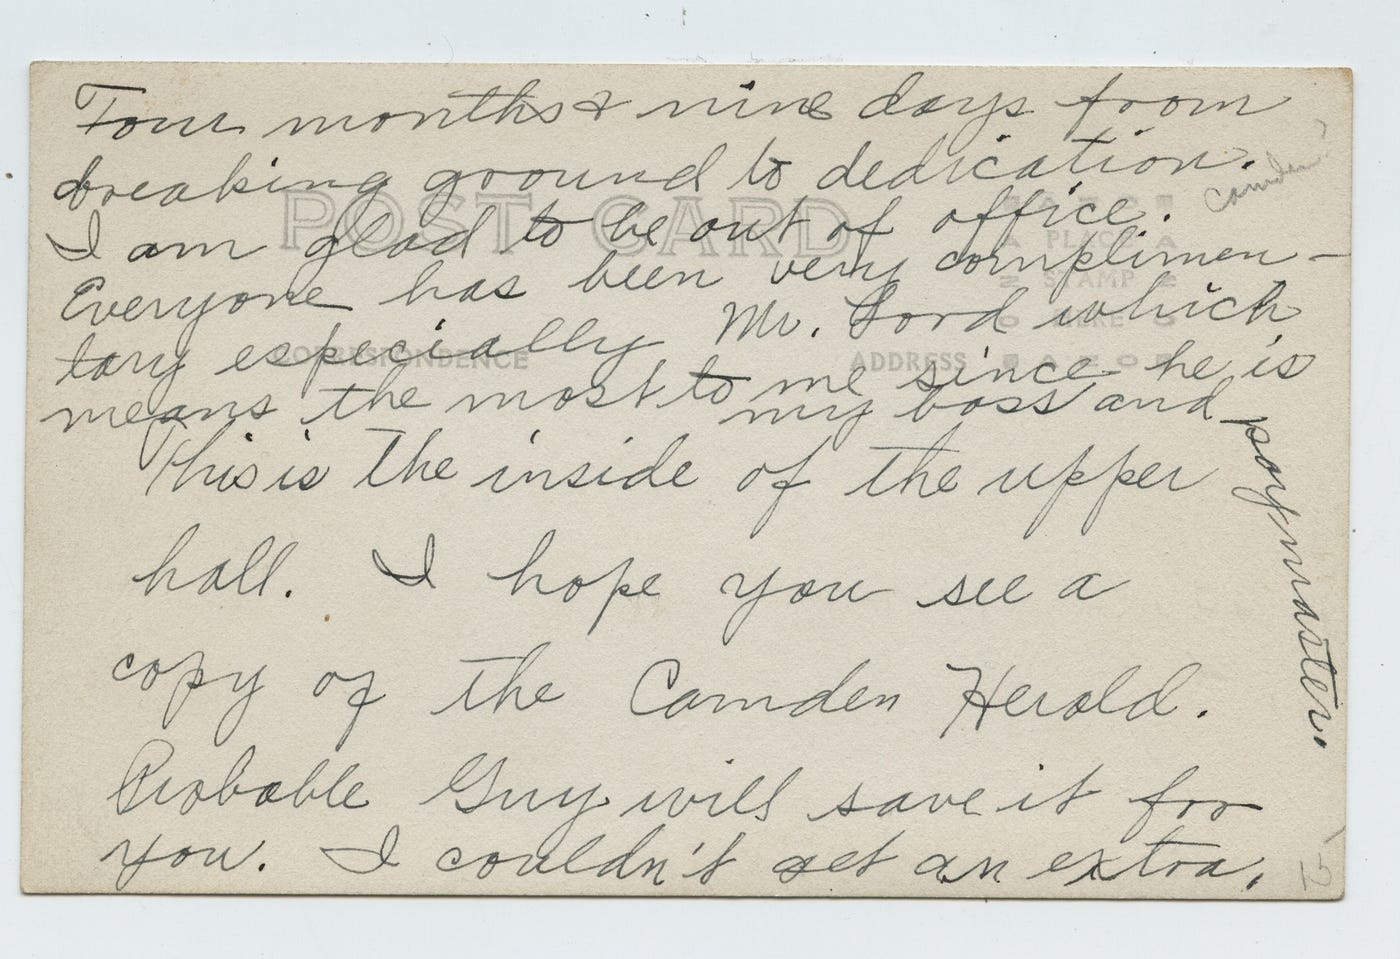 Four months & nine days from
breaking ground to dedication.
Camden?
I am glad to be out of office.
Everyone has been very complimen-
tary especially Mr. Lord which
means the most to me since he is
my boss and paymaster.
This is the inside of the upper
hall. I hope you see a
copy of the Camden Herald.
Probable Guy will save it for
you. I couldn't get an extra.
POST CARD
CORRESPONDENCE
ADDRESS
PLACE
STAMP
HERE